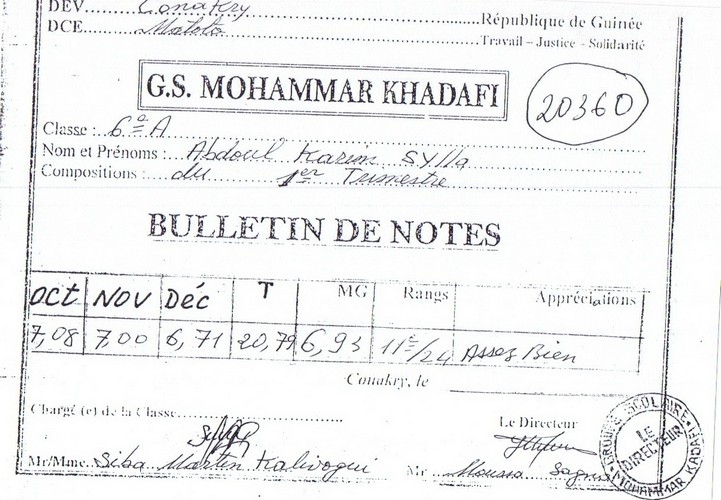 DEV....Conakry.......République de Guinée
DCE......Matoto.......Travail – Justice - Solidarité
G.S. MOHAMMAR KHADAFI
20360
Classe :..6e A
Nom et Prénoms :...Abdoul Karim Sylla
Compositions :....du 1er Trimestre
BULLETIN DE NOTES
OCT NOV Déc T MG Rangs Appréciations
7,08 7,00 6,71 20,79 6,93 11e/24 Assez Bien
Conakry, le
Chargé (e) de la Classe
Le Directeur
Mr/Mme..Siba Martin Kalivogui
Mr ...Moussa
GROUPE SCOLAIRE MOHAMMAR KADAFI
LE DIRECTEUR